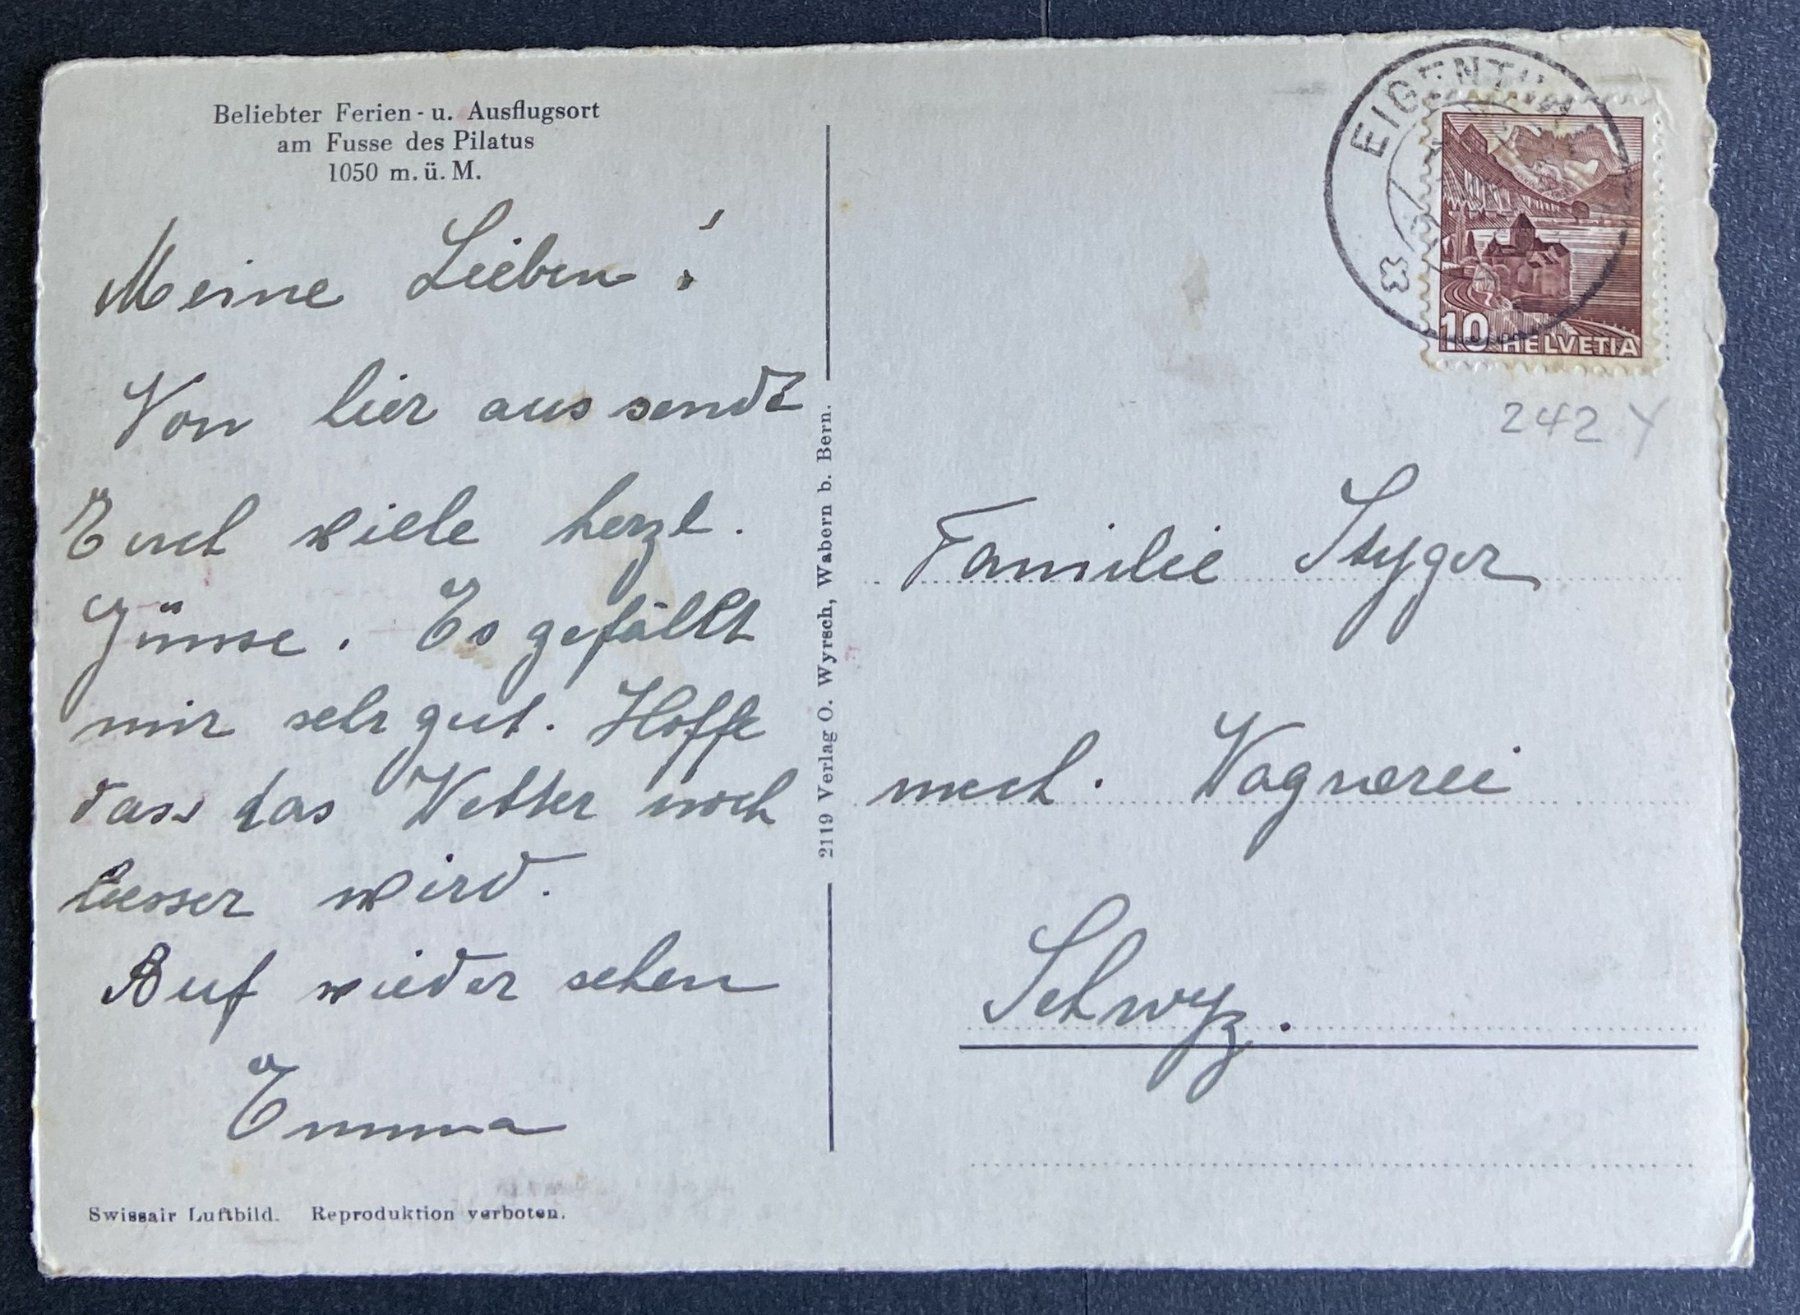 Beliebter Ferien - u. Ausflugsort
am Fusse des Pilatus
1050 m. ü. M.
Meine Lieben !
Von hier aus sendt
Euch viele herzl.
Grüsse. Es gefällt
mir sehr gut. Hoffe
dass das Wetter noch
besser wird.
Auf wieder sehen
Emma
Swissair Luftbild. Reproduktion verboten.
2119 Verlag O. Wyrsch, Wabern b. Bern.
EIGENTHAL
10 HELVETIA
242 Y
Familie Styger
mech. Wagnerei
Schwyz.